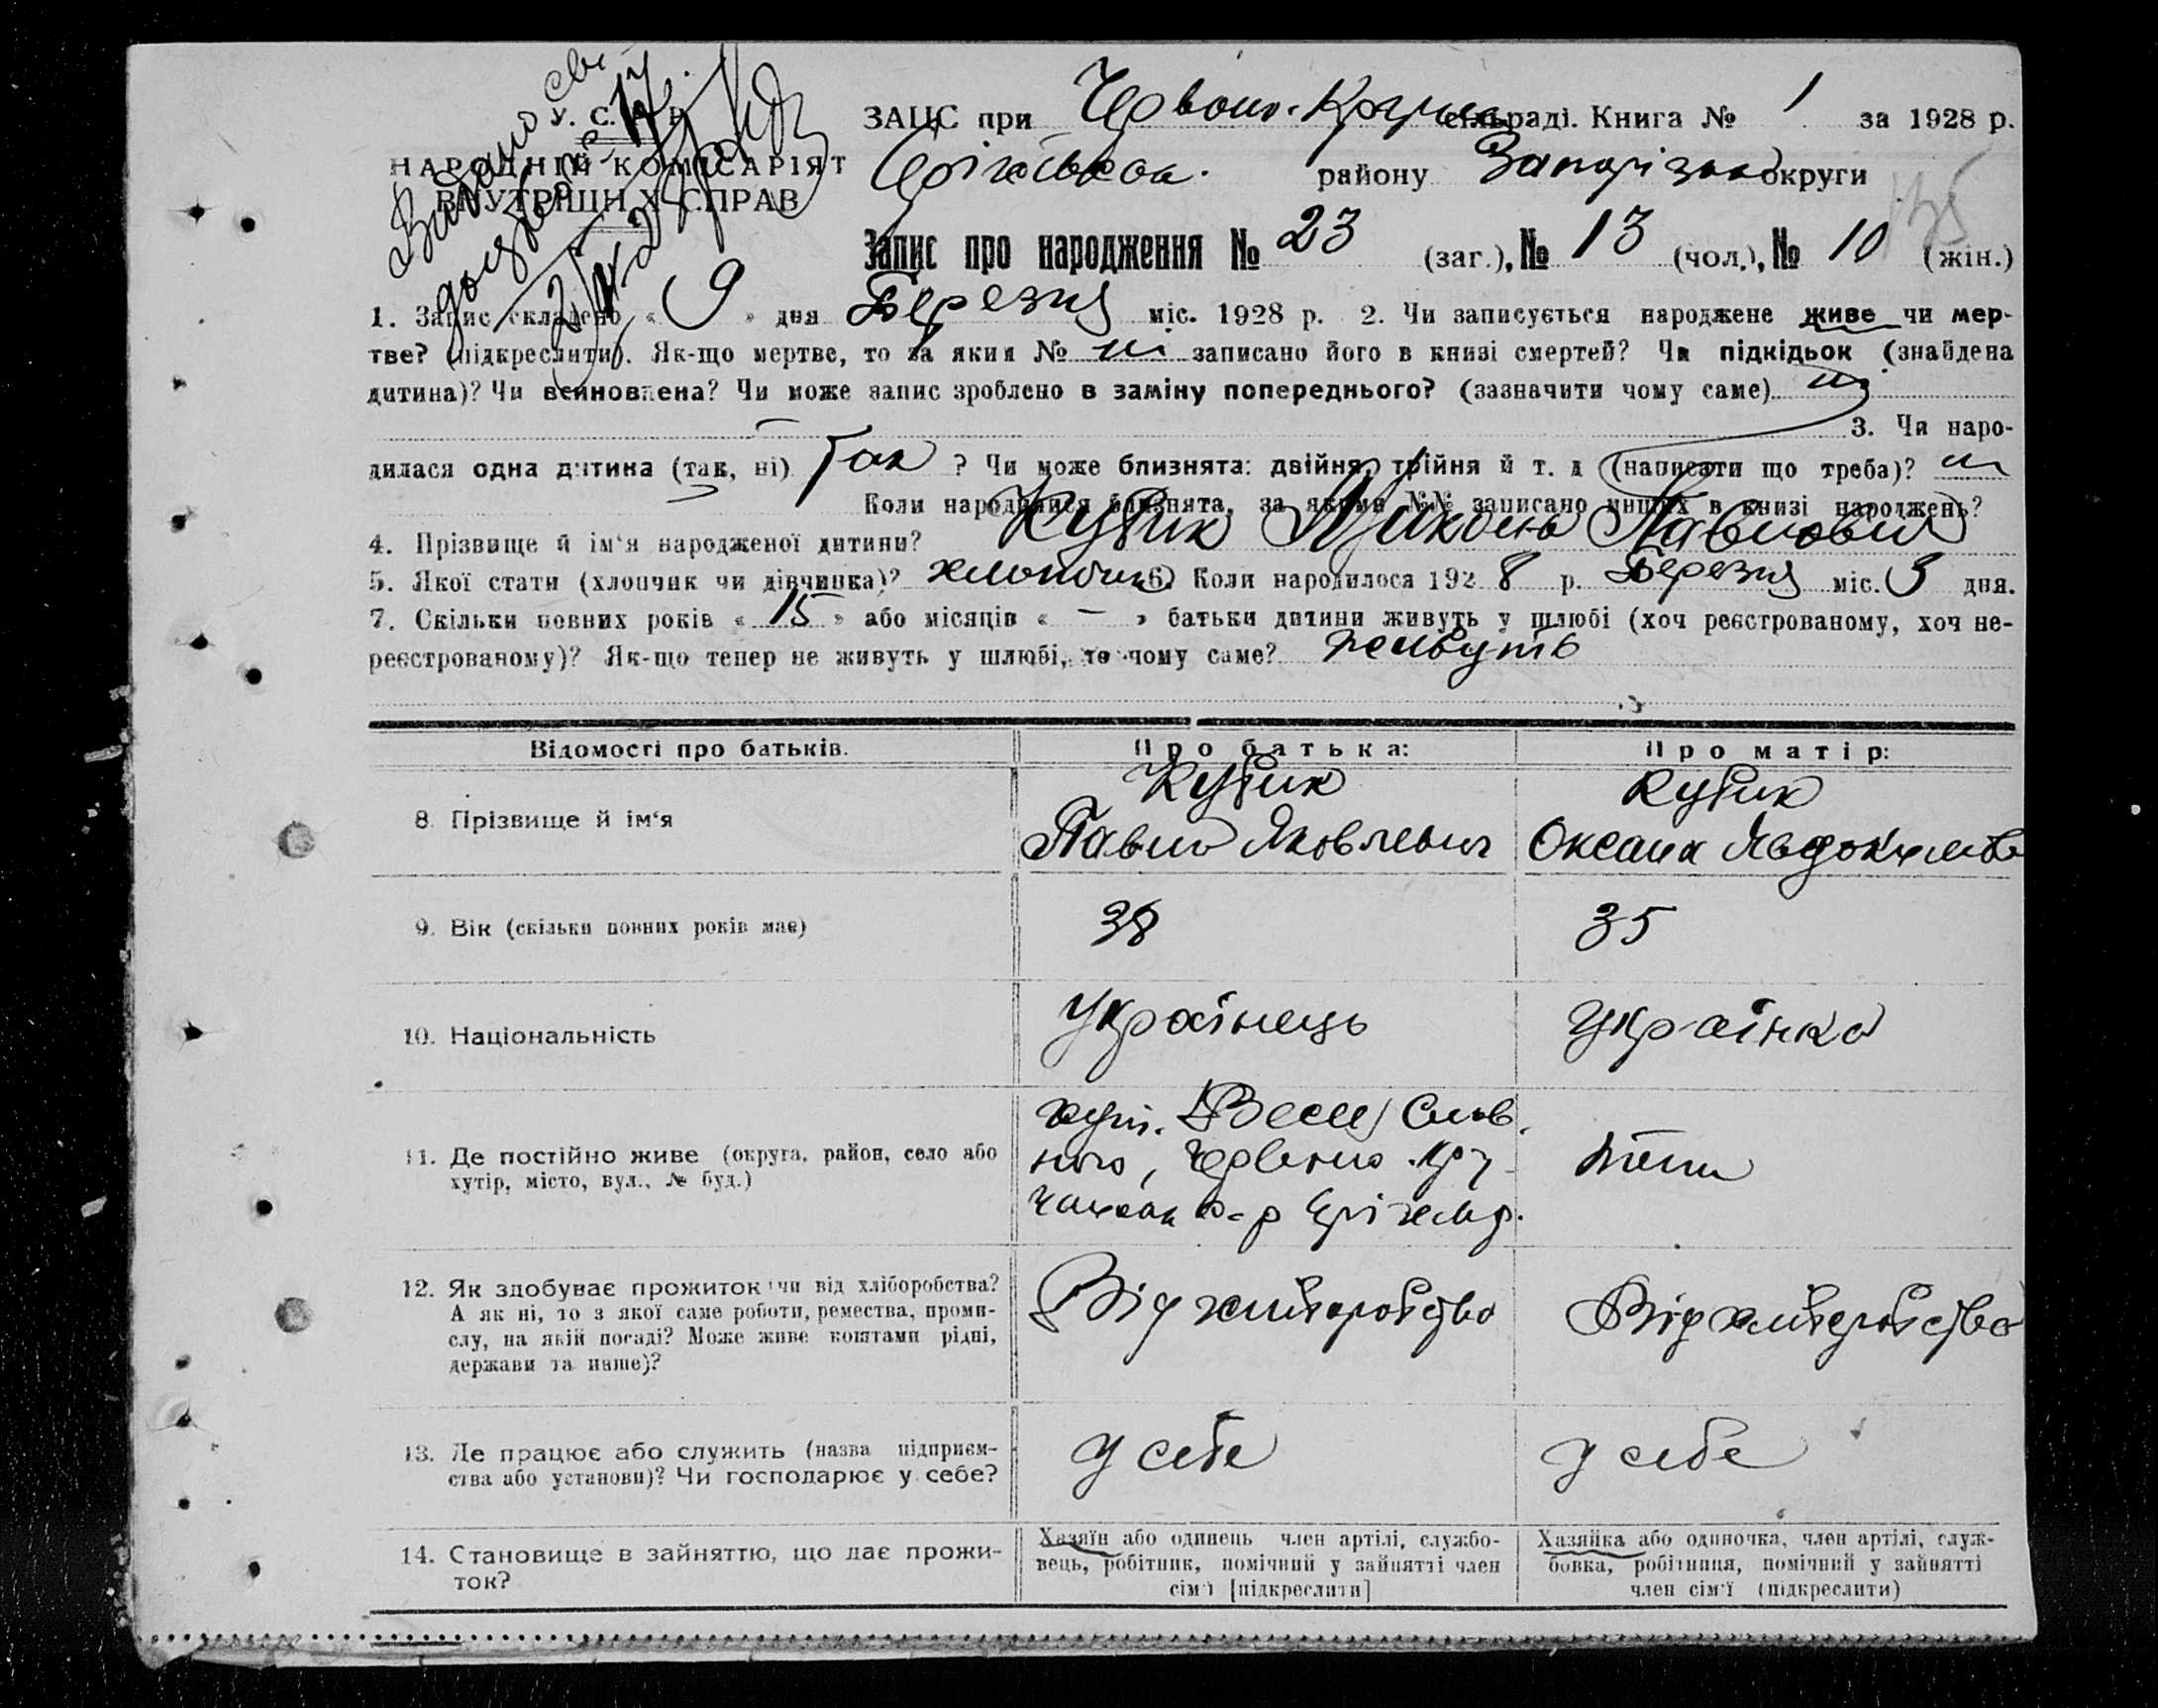 У. С. Р. Р.
НАРОДНІЙ КОМІСАРІЯТ
ВНУТРІШНІХ СПРАВ
Видано
ЗАЦС при Червоно-Кр сільраді. Книга № 1 за 1928 р.
району Запорізької округи
Запис про народження № 23 (заг.), № 13 (чол.), № 10 (жін.)
1. Запис складено « 9 » дня Березня міс. 1928 р. 2. Чи записується народжене живе чи мер-
тве? (підкреслити). Як-що мертве, то за яким № ні записано його в книзі смертей? Чи підкідьок (знайдена
дитина)? Чи всиновлена? Чи може запис зроблено в заміну попереднього? (зазначити чому саме) ні
3. Чи наро-
дилася одна дитина (так, ні) Так ? Чи може близнята: двійня, трійня й т. д (написати що треба)? ні
Коли народилися близнята, за якими №№ записано инших в книзі народжень?
4. Прізвище й ім‘я народженої дитини? Кубик Микола Павлович
5. Якої стати (хлопчик чи дівчинка)? хлопчик 6. Коли народилося 1928 р. Березня міс. 3 дня.
7. Скільки повних років « 15 » або місяців « — » батьки дитини живуть у шлюбі (хоч реєстрованому, хоч не-
реєстрованому)? Як-що тепер не живуть у шлюбі, то чому саме? живуть
Відомості про батьків.
Про батька:
Про матір:
8. Прізвище й ім‘я
Кубик
Павло Яковлевич
Кубик
Оксана Явдокимовна
9. Вік (скільки повних років має)
38
35
10. Національність
Українець
Українка
11. Де постійно живе (округа, район, село або
хутір, місто, вул., № буд.)
хут. Весел
Червоно
12. Як здобуває прожиток чи від хліборобства?
А як ні, то з якої саме роботи, ремества, проми-
слу, на якій посаді? Може живе коштами рідні,
держави та инше)?
Від хліборобства
Від хліборобства
13. Де працює або служить (назва підприєм-
ства або установи)? Чи господарює у себе?
у себе
у себе
14. Становище в зайняттю, що дає прожи-
ток?
Хазяїн або одинець член артілі, службо-
вець, робітник, помічний у зайнятті член
сім‘ї [підкреслити]
Хазяйка або одиночка, член артілі, служ-
бовка, робітниця, помічний у зайнятті
член сім‘ї (підкреслити)